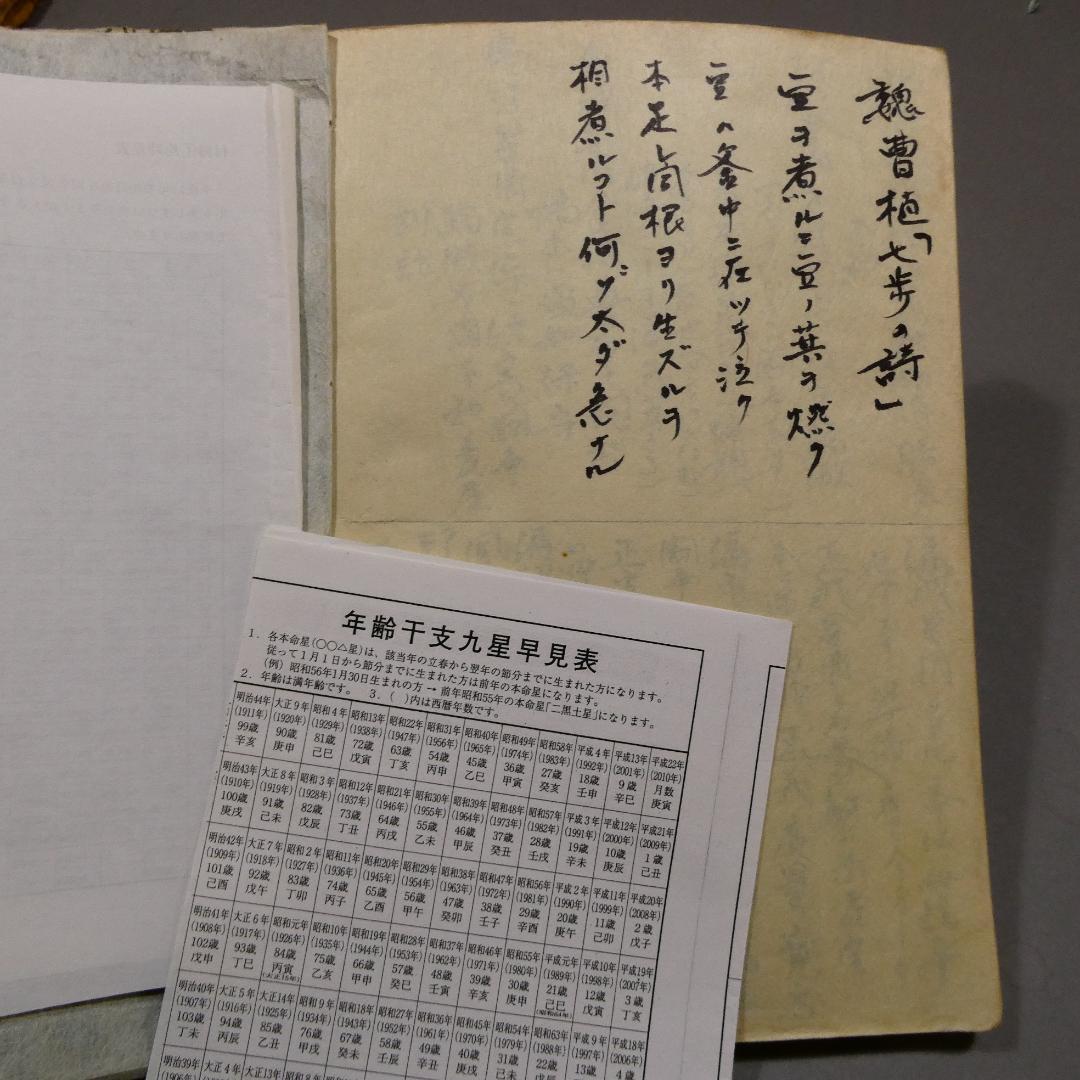 魏曹植「七歩の詩」
豆ヲ煮ルニ豆ノ萁ヲ燃ク
豆ハ釜中ニ在ツテ泣ク
本是レ同根ヨリ生ズルヲ
相煮ルコト何ゾ太ダ急ナル
年齢干支九星早見表
1. 各本命星(〇〇△星)は、該当年の立春から翌年の節分までに生まれた方になります。
従って1月1日から節分までに生まれた方は前年の本命星になります。
(例) 昭和56年1月30日生まれの方 → 前年昭和55年の本命星「二黒土星」になります。
2. 年齢は満年齢です。 3. ( )内は西暦年数です。
明治44年 大正9年 昭和4年 昭和13年 昭和22年 昭和31年 昭和40年 昭和49年 昭和58年 平成4年 平成13年 平成22年
(1911年) (1920年) (1929年) (1938年) (1947年) (1956年) (1965年) (1974年) (1983年) (1992年) (2001年) (2010年)
99歳 90歳 81歳 72歳 63歳 54歳 45歳 36歳 27歳 18歳 9歳 月数
辛亥 庚申 己巳 戊寅 丁亥 丙申 乙巳 甲寅 癸亥 壬申 辛巳 庚寅
明治43年 大正8年 昭和3年 昭和12年 昭和21年 昭和30年 昭和39年 昭和48年 昭和57年 平成3年 平成12年 平成21年
(1910年) (1919年) (1928年) (1937年) (1946年) (1955年) (1964年) (1973年) (1982年) (1991年) (2000年) (2009年)
100歳 91歳 82歳 73歳 64歳 55歳 46歳 37歳 28歳 19歳 10歳 1歳
庚戌 己未 戊辰 丁丑 丙戌 乙未 甲辰 癸丑 壬戌 辛未 庚辰 己丑
明治42年 大正7年 昭和2年 昭和11年 昭和20年 昭和29年 昭和38年 昭和47年 昭和56年 平成2年 平成11年 平成20年
(1909年) (1918年) (1927年) (1936年) (1945年) (1954年) (1963年) (1972年) (1981年) (1990年) (1999年) (2008年)
101歳 92歳 83歳 74歳 65歳 56歳 47歳 38歳 29歳 20歳 11歳 2歳
己酉 戊午 丁卯 丙子 乙酉 甲午 癸卯 壬子 辛酉 庚午 己卯 戊子
明治41年 大正6年 昭和元年 昭和10年 昭和19年 昭和28年 昭和37年 昭和46年 昭和55年 平成元年 平成10年 平成19年
(1908年) (1917年) (1926年) (1935年) (1944年) (1953年) (1962年) (1971年) (1980年) (1989年) (1998年) (2007年)
102歳 93歳 84歳 75歳 66歳 57歳 48歳 39歳 30歳 21歳 12歳 3歳
戊申 丁巳 丙寅 乙亥 甲申 癸巳 壬寅 辛亥 庚申 己巳 戊寅 丁亥
(大正15年) (昭和64年)
明治40年 大正5年 大正14年 昭和9年 昭和18年 昭和27年 昭和36年 昭和45年 昭和54年 昭和63年 平成9年 平成18年
(1907年) (1916年) (1925年) (1934年) (1943年) (1952年) (1961年) (1970年) (1979年) (1988年) (1997年) (2006年)
103歳 94歳 85歳 76歳 67歳 58歳 49歳 40歳 31歳 22歳 13歳 4歳
丁未 丙辰 乙丑 甲戌 癸未 壬辰 辛丑 庚戌 己未 戊辰
明治39年 大正4年 大正13年 昭和8年
(1906年